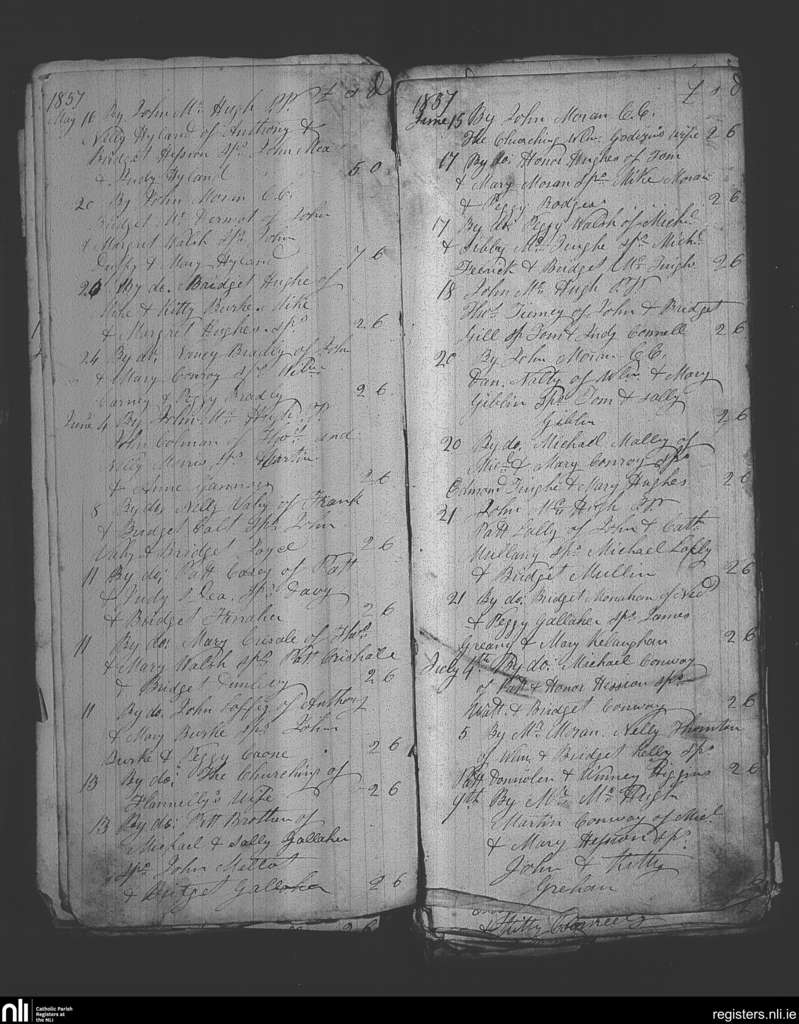 1837 £ s d
May 16 By John Mc Hugh PP.
Nelly Hyland of Anthony &
Bridget Hession Sps. John Mea
& Judy Hyland 5 0
20 By John Moran C.C.
Bridget Mc Dermot of John
& Margret Walsh Sps John
Duffy & Mary Hyland 7 6
20 By do. Bridget Hughe of
Mike & Kitty Burke. Mike
& Margret Hughes Sps 2 6
24 By do: Nancy Bradey of John
& Mary Conroy Sps Wilm
Carney & Peggy Bradey 2 6
June 4 By John Mc Hugh pp
John Colman of Thos. and
Nelly Morris Sps Martin
& Anne 2 6
8 By do: Nelly Vahy of Frank
& Bridget Sps. John
Vahy & Bridget Joyce 2 6
11 By do: Patt Casey of Patt
& Judy Sps. Davy
& Bridget 2 6
11 By do: Mary of Thos.
& Mary Walsh Sps Patt
& Bridget Dunlevy 2 6
11 By do. John of Anthony
& Mary Burke Sps John
Burke & Peggy Coone 2 6
13 By do: The Churching of
Flannelly's Wife 2 6
13 By do: Patt Brothen of
Michael & Sally Gallaher
Sps. John
& Bridget Gallaher 2 6
2 6
1837 £ s d
June 15 By John Moran C.C.
The Churching Wlm. Wife 2 6
17 By do. Honor Hughes of Tom
& Mary Moran Sps. Mike Moran
& Peggy Rodgers 2 6
17 By do: Peggy Walsh of Michl.
& Sibby Mc Tinghe Sps Michl.
French & Bridget Mc Tinghe 2 6
18 John Mc Hugh PP
Thos. Tierney of John & Bridget
Gill Sp Tom & Judy Connell 2 6
20 By John Moran C.C.
Dan. Nally of Wlm & Mary
Giblin Sps. Tom & Sally
Giblin 2 6
20 By do: Michael Mally of
Micl. & Mary Conroy Sps
Edmond Tinghe & Mary Hughes 2 6
21 John Mc Hugh PP
Patt Lally of John & Cath.
Mullany Sps. Michael
& Bridget Mullin 2 6
21 By do: Bridget Monahan of Ned
& Peggy Gallaher Sps James
Greany & Mary 2 6
July 4th By do: Michael Conway
of Patt & Honor Hession Sps
Watt & Bridget Conway 2 6
5 By Mr. Moran. Nelly Thornton
of Wlm & Bridget Kelly Sps
Patt Donnolen & Winney Higgins 2 6
9th By Mr. Mc Hugh
Martin Conway of Micl.
& Mary Hession Sps.
John & Kitty
Grehan
& Kitty
nli
Catholic Parish
Registers at
the NLI
registers.nli.ie